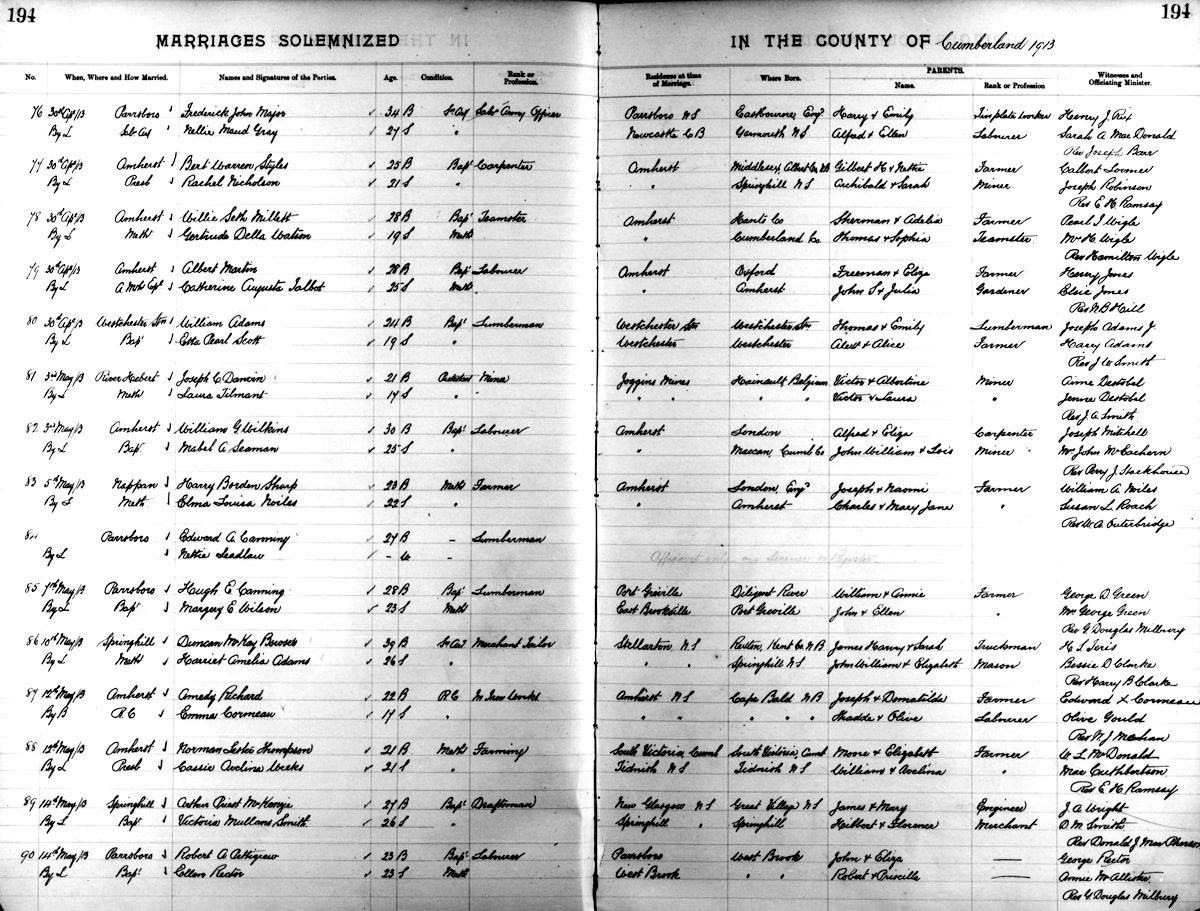 194 194
MARRIAGES SOLEMNIZED IN THE COUNTY OF Cumberland 1913
No. When, Where and How Married. Names and Signatures of the Parties. Age. Condition. Rank or Profession. Residence at time of Marriage. Where Born. PARENTS. Name. Rank or Profession Witnesses and Officiating Minister.
76 30th Apl/13 Parrsboro Frederick John Major 34 B S. Army Officer Parrsboro N S Eastbourne, Eng Harry & Emily Tinplate worker Henry J Rix
By L Nellie Maud Gray 27 S " Newcastle C B Yarmouth N S Alfred & Ellen Labourer Sarah A MacDonald
Rev Joseph Barr
77 30th Apl/13 Amherst Bert Warren Styles 25 B Bapt Carpenter Amherst Middlesex, Albert Co, NB Gilbert H & Nettie Farmer Calbert Loomer
By L Presb Rachel Nicholson 21 S " " Springhill N S Archibald & Sarah Miner Joseph Robinson
Rev E H Ramsay
78 30th Apl/13 Amherst Willie Seth Millett 28 B Bapt Teamster Amherst Hants Co Sherman & Adelia Farmer Pearl I Wigle
By L Meth Gertrude Della Watson 19 S Meth " Cumberland Co. Thomas & Sophia Teamster Mrs H Wigle
Rev Hamilton Wigle
79 30th Apl/13 Amherst Albert Martin 28 B Bapt Labourer Amherst Oxford Freeman & Eliza Farmer Henry Jones
By L A Meth Epl Catherine Augusta Talbot 25 S Meth " Amherst John S & Julia Gardener Elsie Jones
Rev W B Hill
80 30th Apl/13 Westchester Stn William Adams 24 B Bapt Lumberman Westchester Stn Westchester Stn Thomas & Emily Lumberman Joseph Adams Jr
By L Bapt Etta Pearl Scott 19 S " Westchester Westchester Albert & Alice Farmer Harry Adams
Rev J W Smith
81 3rd May/13 River Hebert Joseph C Danvin 21 B Protestant Miner Joggins Mines Hainault Belgium Victor & Albertine Miner Aime Destobel
By L Meth Laura Tilmant 17 S " " " " " Victor & Laura " Jenne Destobel
Rev J A Smith
82 3rd May/13 Amherst William G Wilkins 30 B Bapt Labourer Amherst London Alfred & Eliza Carpenter Joseph Mitchell
By L Bapt Mabel A Seaman 25 S " " Maccan, Cumb Co John William & Lois Miner Mrs John McEachern
Rev Perry J Stackhouse
83 5th May/13 Nappan Harry Borden Sharp 23 B Meth Farmer Amherst London, Eng Joseph & Naomi Farmer William A Noiles
By L Meth Elma Louisa Noiles 22 S " " Amherst Charles & Mary Jane " Susan L Roach
Rev W A Outerbridge
84 Parrsboro Edward A Canning 27 B - Lumberman
By L Nettie - W -
85 7th May/13 Parrsboro Hugh E Canning 28 B Bapt Lumberman Port Greville Diligent River William & Annie Farmer George D Green
By L Bapt Margery E Wilson 23 S Meth East Brookville Port Greville John & Ellen " Mrs George Green
Rev G Douglas Milbury
86 10th May/13 Springhill Duncan McKay Bowser 39 B Merchant Tailor Stellarton N S Rexton, Kent Co N B James Harvey & Sarah Truckman
By L Meth Harriet Amelia Adams 26 S " " " Springhill N S John William & Elizabeth Mason Bessie D Clarke
Rev Harry B Clarke
87 12th May/13 Amherst Amedy Richard 22 B R C Amherst N S Cape Bald N B Joseph & Domatilde Farmer Edward X Cormeau
By B R C Emma Cormeau 17 S " " " " " " Thadde & Olive Labourer Olive Gould
Rev W J Meehan
88 12th May/13 Amherst Norman Lester Thompson 21 B Meth Farming South Victoria, Cumb South Victoria, Cumb Moore & Elizabeth Farmer W L McDonald
By L Presb Cassie Avelina Weeks 21 S " Tidnish N S Tidnish N S Williams & Avelina " Mae Cuthbertson
Rev E H Ramsay
89 14th May/13 Springhill Arthur Priest McKenzie 27 B Bapt Draftsman New Glasgow N S Great Village N S James & Mary Engineer J A Wright
By L Bapt Victoria Mullans Smith 26 S " Springhill " Springhill Hibbert & Florence Merchant D M Smith
Rev Donald J MacPherson
90 14th May/13 Parrsboro Robert A Pettigrew 23 B Bapt Labourer Parrsboro West Brook John & Eliza — George Rector
By L Bapt Ellen Rector 23 S Meth West Brook " " Robert & Priscilla — Annie McAllister
Rev G. Douglas Milbury